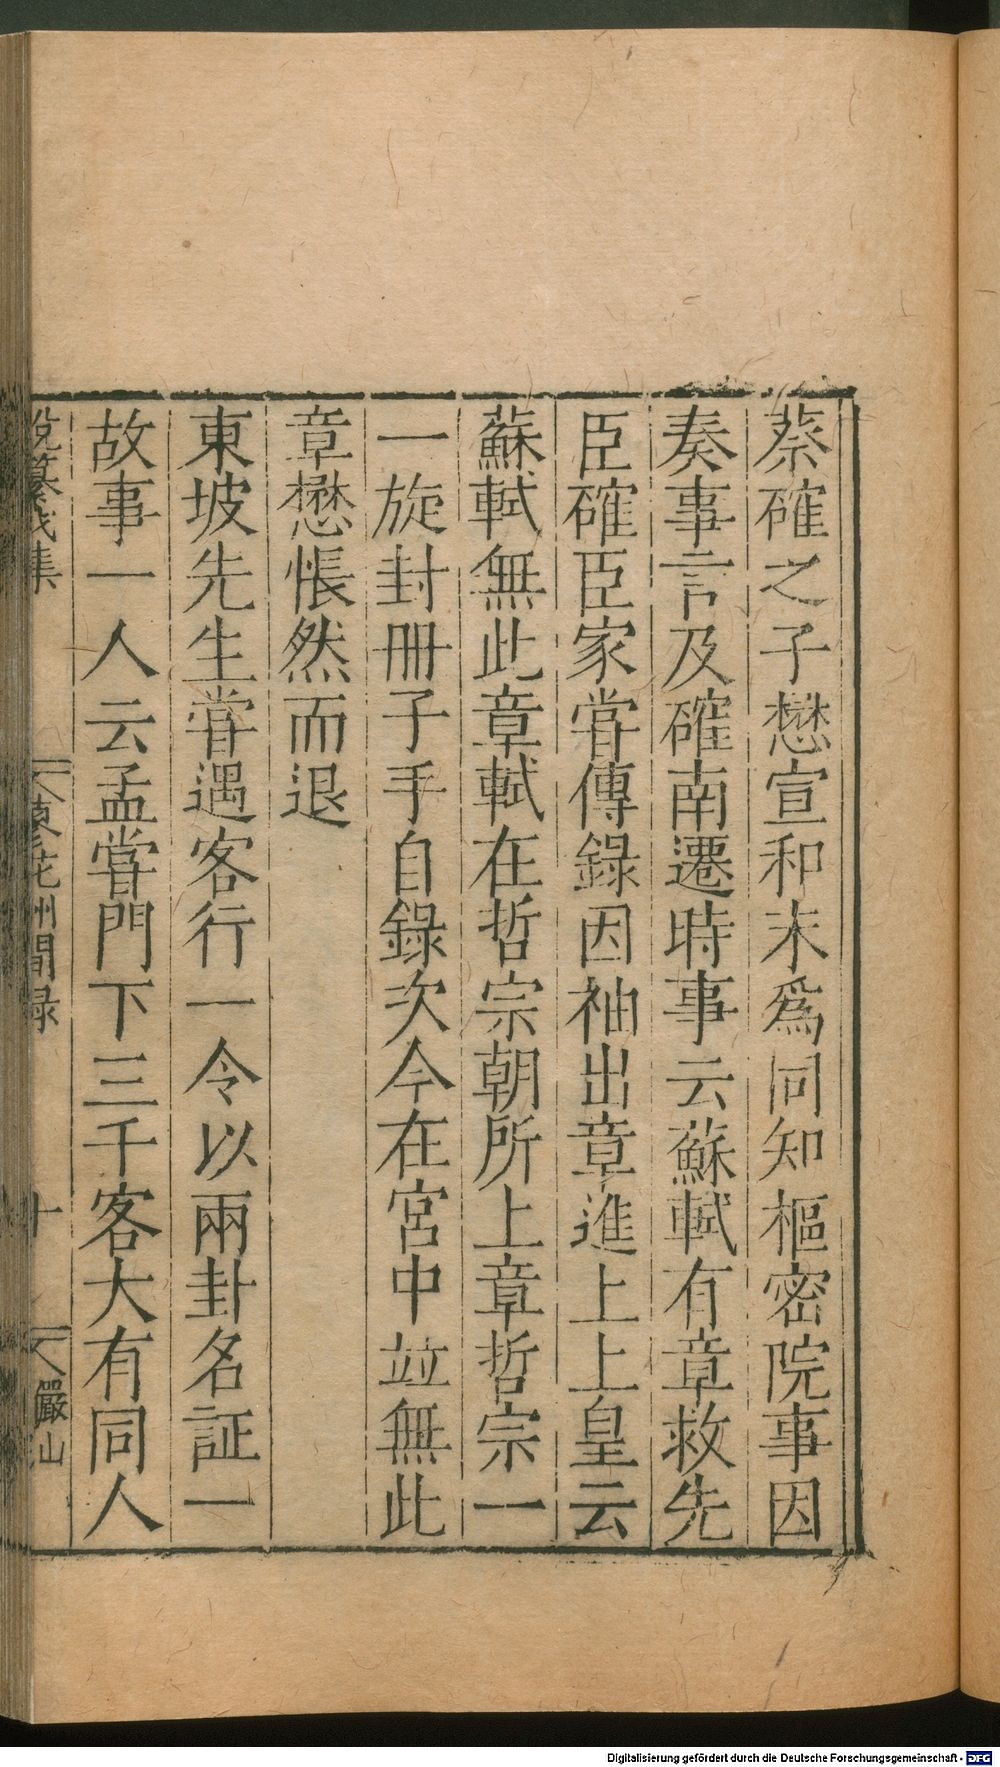 蔡確之子懋宣和末爲同知樞密院事因
奏事言及確南遷時事云蘇軾有章救先
臣確臣家甞傳錄因袖出章進上上皇云
蘇軾無此章軾在哲宗朝所上章哲宗一
一旋封冊子手自錄次今在宮中竝無此
章懋悵然而退
東坡先生甞遇客行一令以兩卦名証一
故事一人云孟嘗門下三千客大有同人
說纂戊集
東花州閒録
十
儼山
Digitalisierung gefördert durch die Deutsche Forschungsgemeinschaft - DFG